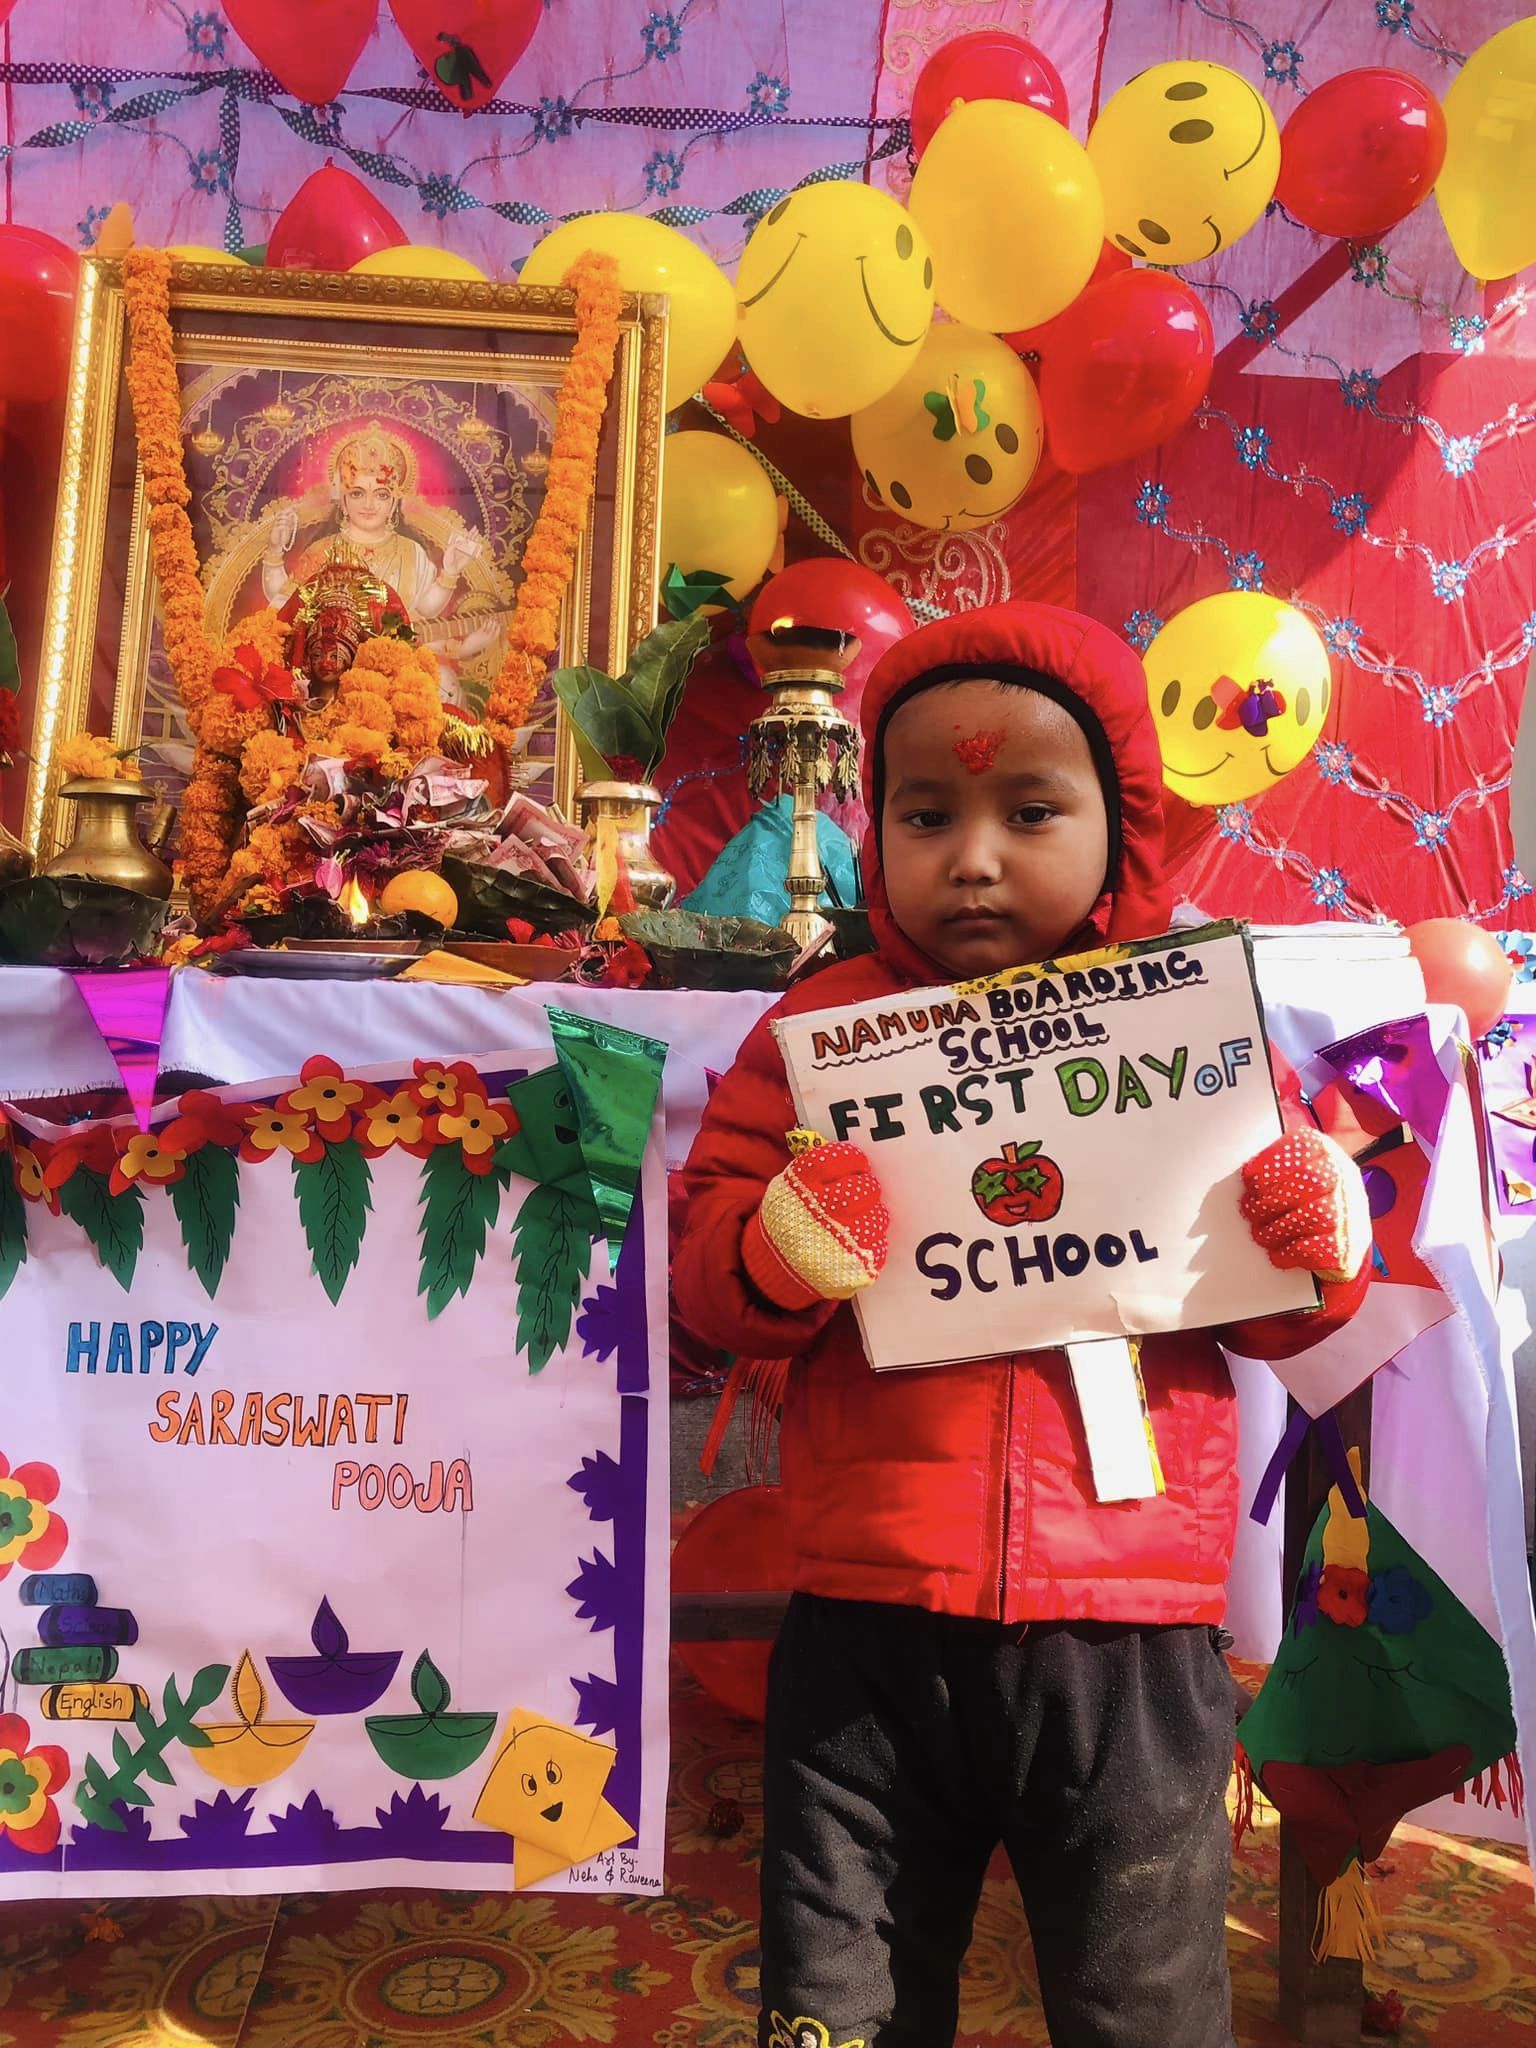 NAMUNA BOARDING
SCHOOL
FIRST DAY OF
SCHOOL
HAPPY
SARASWATI
POOJA
Maths
Science
Nepali
English
Art By-
Neha & Raveena